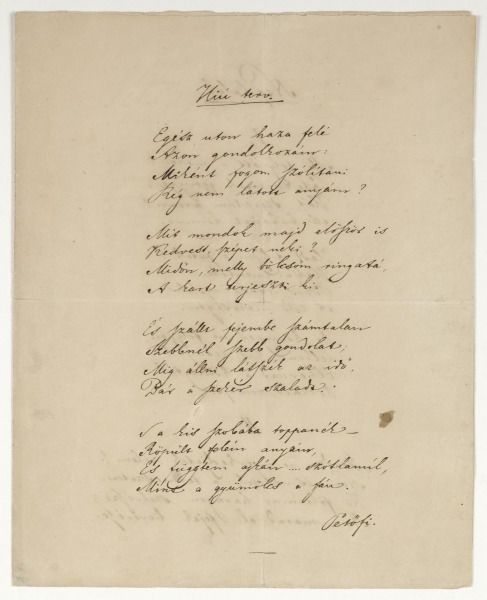 Hiú terv.
Egész uton haza felé
Azon gondolkozám:
Miként fogom szólítani
Rég nem látott anyám?
Mit mondok majd először is
Kedvest, szépet neki?
Midőn, melly bölcsőm ringatá,
A kart terjeszti ki.
És szállt fejembe számtalan
Szebbnél szebb gondolat,
Míg állni látszék az idő,
Bár a szekér szaladt.
S a kis szobába toppanék –
Röpült felém anyám,
És függtem ajkán ... szótlanúl,
Mint a gyümölcs a fán.
Petőfi.